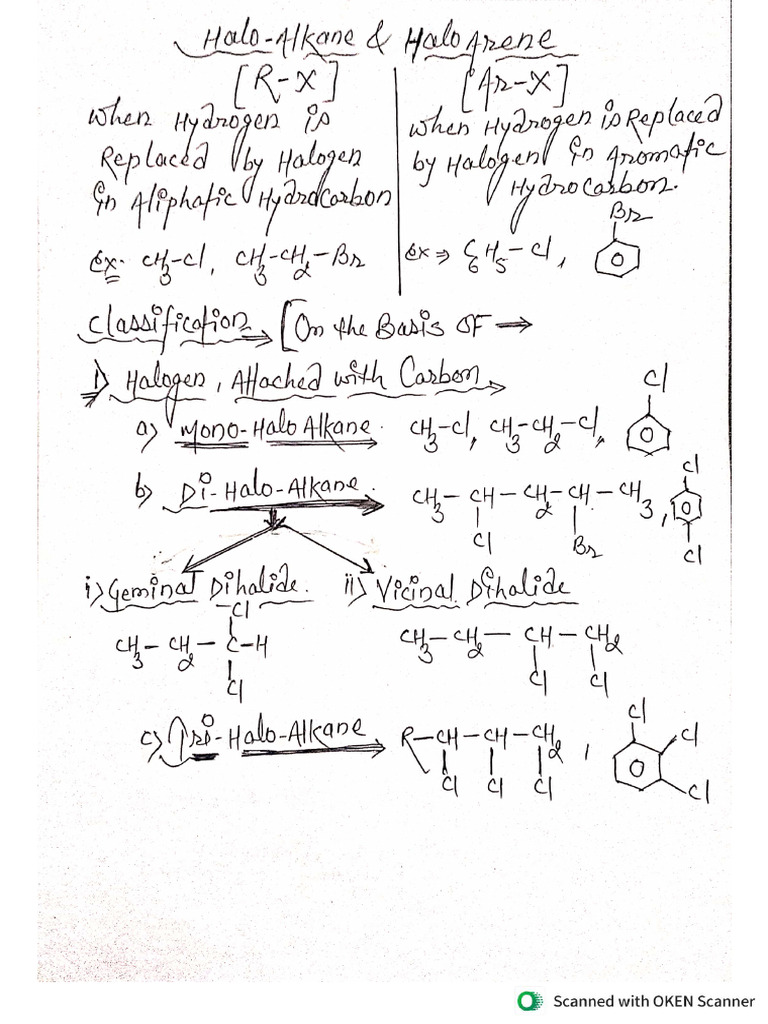 Halo-Alkane & HaloArene
[R-X]
[Ar-X]
When Hydrogen is
Replaced by Halogen
in Aliphatic Hydrocarbon
ex. CH3-Cl, CH3-CH2-Br
When Hydrogen is Replaced
by Halogen in Aromatic
Hydrocarbon.
Br
ex ⇒ C6H5-Cl,
Classification ⇒ [On the Basis OF →
1) Halogen, Attached with Carbon
Cl
a) Mono-HaloAlkane. CH3-Cl, CH3-CH2-Cl,
Cl
b) Di-Halo-Alkane. CH3-CH-CH2-CH-CH3,
Cl Br Cl
i) Geminal Dihalide. ii) Vicinal Dihalide
Cl
CH3-CH2-C-H CH3-CH2-CH-CH2
Cl Cl Cl
c) Tri-Halo-Alkane R-CH-CH-CH2,
Cl Cl Cl
Cl
Cl
Cl
Scanned with OKEN Scanner